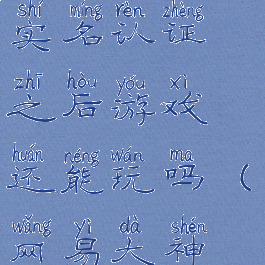 shí míng rèn zhèng
实名认证
zhī hòu yóu xì
之后游戏
huán néng wán ma
还能玩吗（
wǎng yì dà shén
网易大神